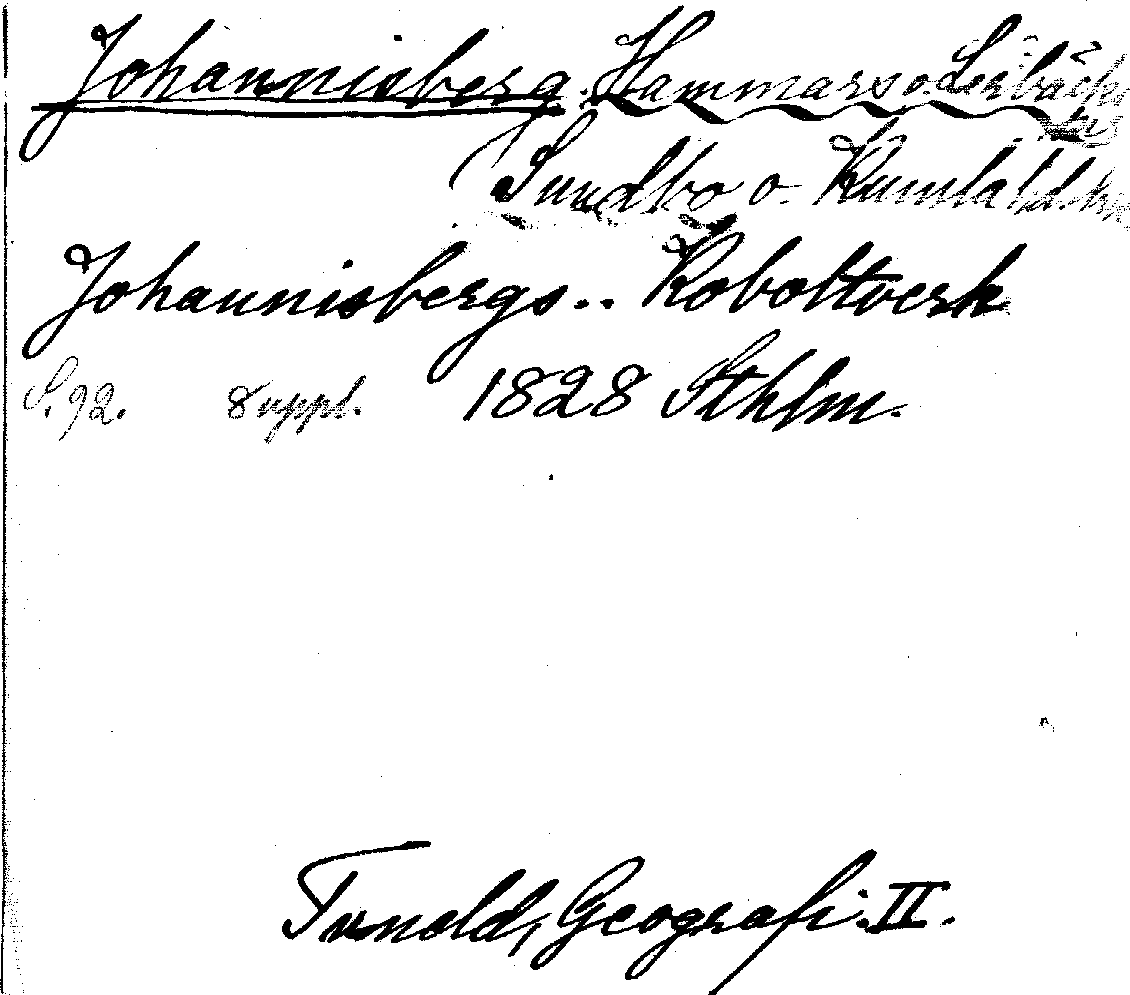 Johannisberg. Hammars o. Lerbäcks
Sundbo o. Kumla hd.
Johannisbergs.. Koboltverk
S. 92. 8 uppl. 1828 Sthlm.
Tuneld, Geografi. II.